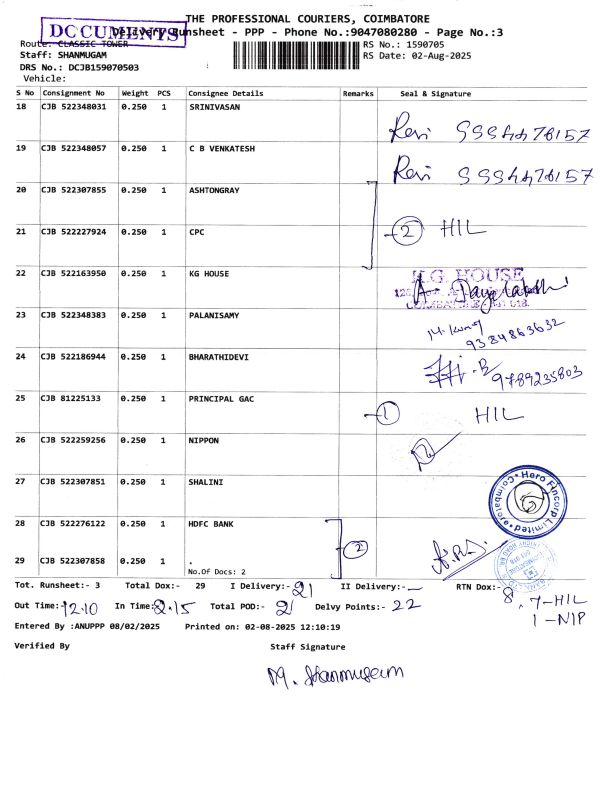 THE PROFESSIONAL COURIERS, COIMBATORE
DOCUMENTS
Delivery Runsheet - PPP - Phone No.:9047080280 - Page No.:3
Route: CLASSIC TOWER
RS No.: 1590705
Staff: SHANMUGAM
RS Date: 02-Aug-2025
DRS No.: DCJB159070503
Vehicle:
S No Consignment No Weight PCS Consignee Details Remarks Seal & Signature
18 CJB 522348031 0.250 1 SRINIVASAN
Revi 9994476157
19 CJB 522348057 0.250 1 C B VENKATESH
Revi 9994476157
20 CJB 522307855 0.250 1 ASHTONGRAY
21 CJB 522227924 0.250 1 CPC
2 HIL
22 CJB 522163950 0.250 1 KG HOUSE
K.G. HOUSE
23 CJB 522348383 0.250 1 PALANISAMY
9384863632
24 CJB 522186944 0.250 1 BHARATHIDEVI
9789235803
25 CJB 81225133 0.250 1 PRINCIPAL GAC
1 HIL
26 CJB 522259256 0.250 1 NIPPON
27 CJB 522307851 0.250 1 SHALINI
Hero Fincorp Limited Coimbatore
28 CJB 522276122 0.250 1 HDFC BANK
2
29 CJB 522307858 0.250 1 .
No.Of Docs: 2
Tot. Runsheet:- 3 Total Dox:- 29 I Delivery:- 21 II Delivery:- — RTN Dox:- 8, 7-HIL
1-NIP
Out Time:- 12.10 In Time: 2.15 Total POD:- 21 Delvy Points:- 22
Entered By :ANUPPP 08/02/2025 Printed on: 02-08-2025 12:10:19
Verified By Staff Signature
M. Shanmugam